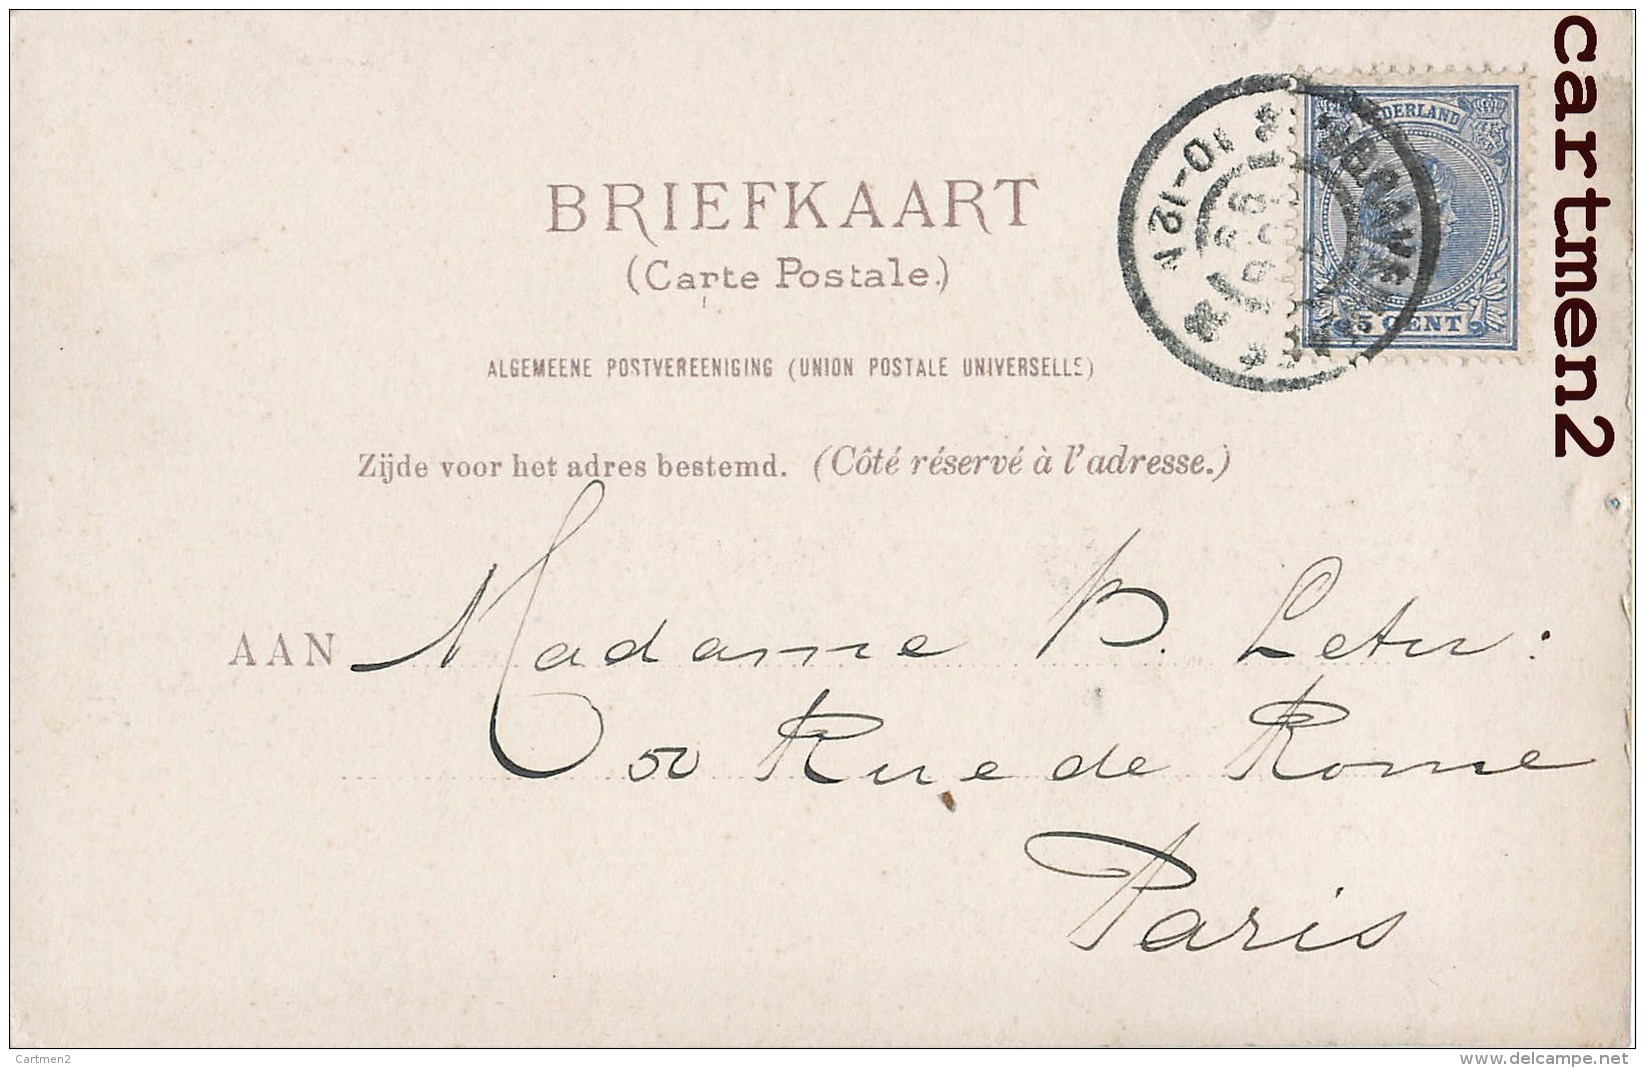 BRIEFKAART
(Carte Postale.)
ALGEMEENE POSTVEREENIGING (UNION POSTALE UNIVERSELLE)
Zijde voor het adres bestemd. (Côté réservé à l'adresse.)
AAN Madame P.
50 Rue de Rome
Paris
NEDERLAND
5 CENT
10-12V
cartmen2
Cartmen2
www.delcampe.net